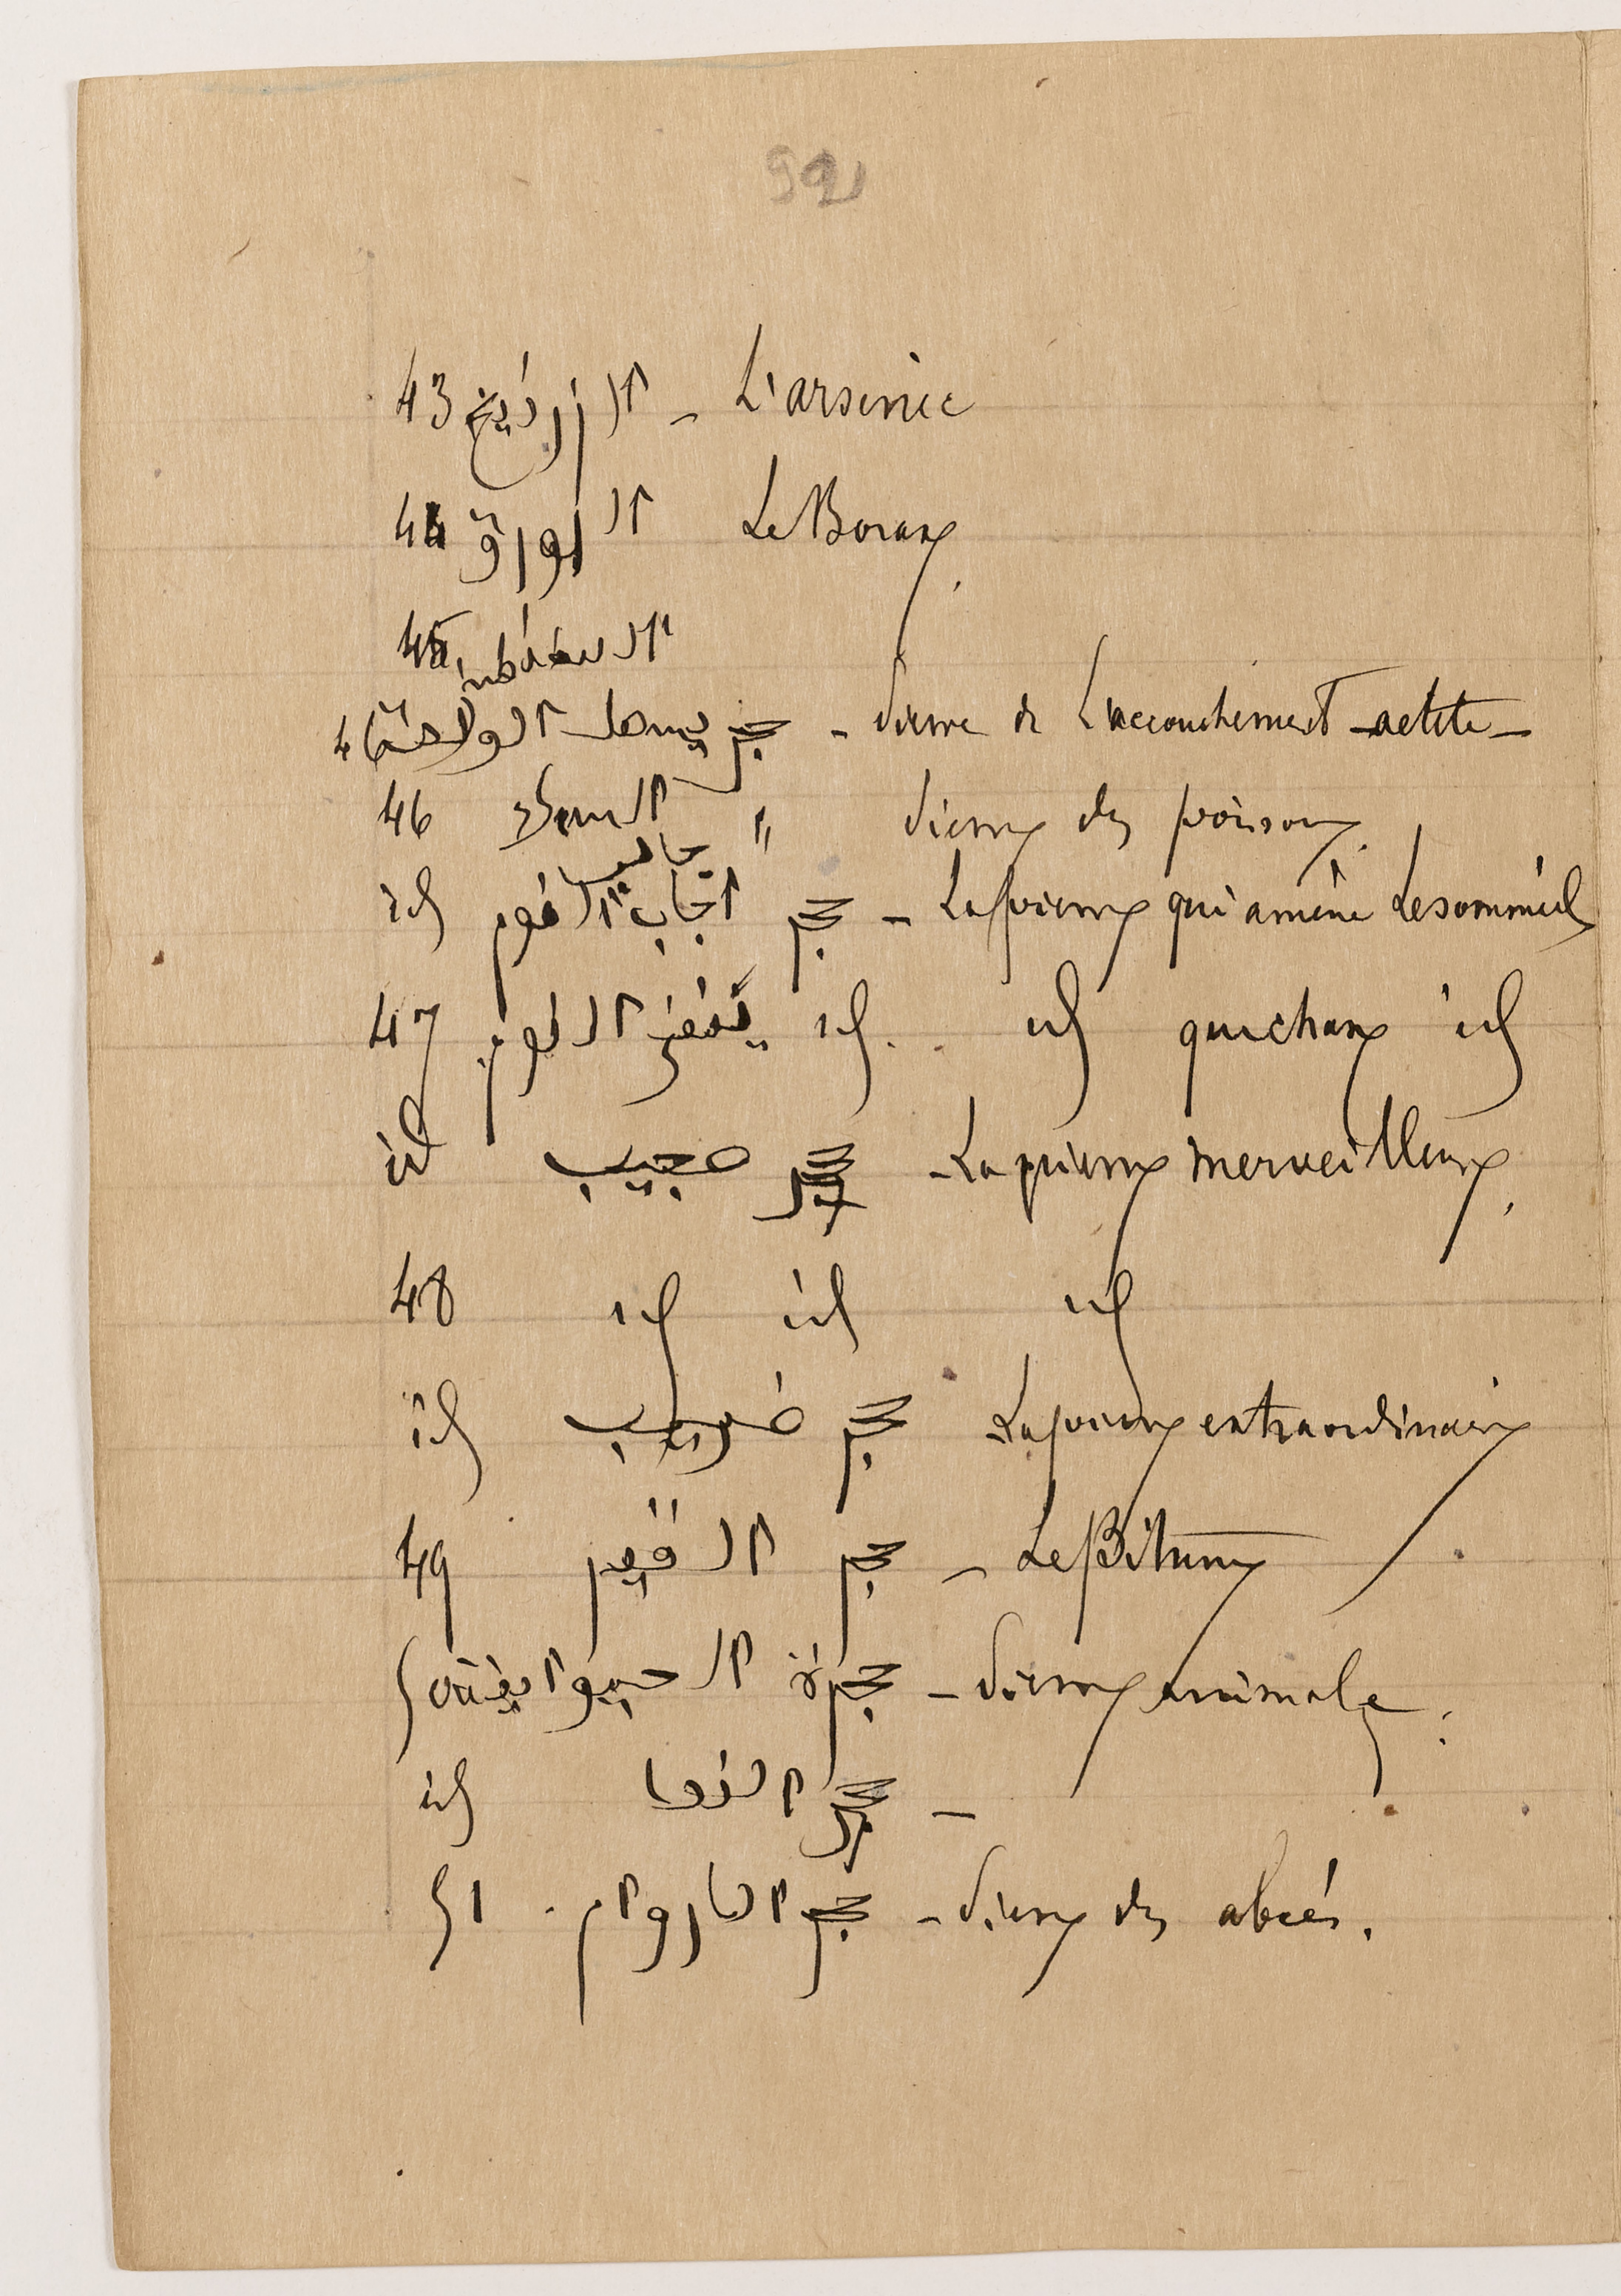 92
43 الزرنيخ - L'arsenic
44 البورق Le Borax
45
حجر يسهل الولادة - Pierre de L'accouchement - aetite -
46 " Pierre des poisons
id حجر جالب النوم - La pierre qui amène Le sommeil
47 id ينفى النوم id qui chasse id
id حجر عجيب - La pierre merveilleuse,
48 id id id
id حجر غريب La pierre extraordinaire
49 حجر القير - Le Bitume
50 حجرة الحيوانية - Pierre animale.
id حجر -
51 حجر الاروام - Pierre des abcés.